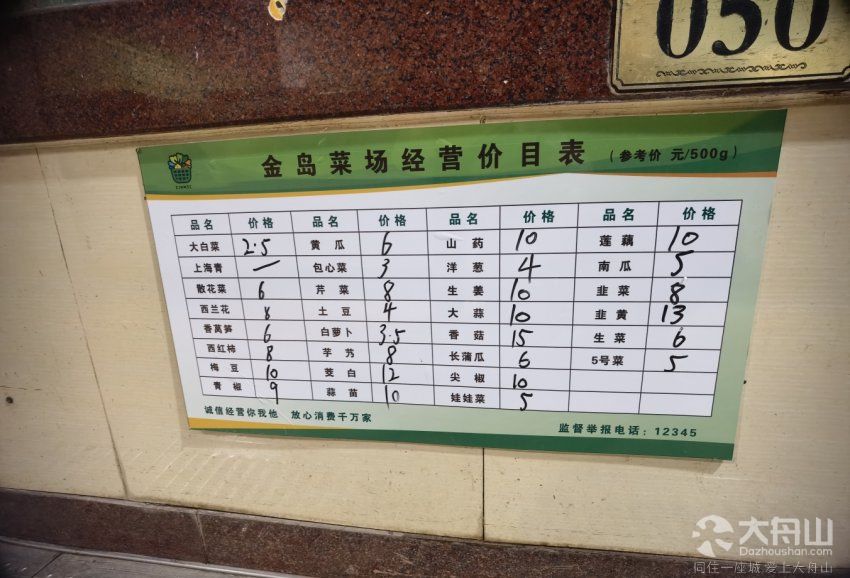 050
金岛菜场经营价目表 (参考价 元/500g)
品名 价格 品名 价格 品名 价格 品名 价格
大白菜 2.5 黄瓜 6 山药 10 莲藕 10
上海青 — 包心菜 3 洋葱 4 南瓜 5
散花菜 6 芹菜 8 生姜 10 韭菜 8
西兰花 8 土豆 4 大蒜 10 韭黄 13
香莴笋 6 白萝卜 3.5 香菇 15 生菜 6
西红柿 8 芋艿 8 长蒲瓜 6 5号菜 5
梅豆 10 茭白 12 尖椒 10
青椒 9 蒜苗 10 娃娃菜 5
诚信经营你我他 放心消费千万家
监督举报电话：12345
大舟山
Dazhoushan.com
同住一座城,爱上大舟山